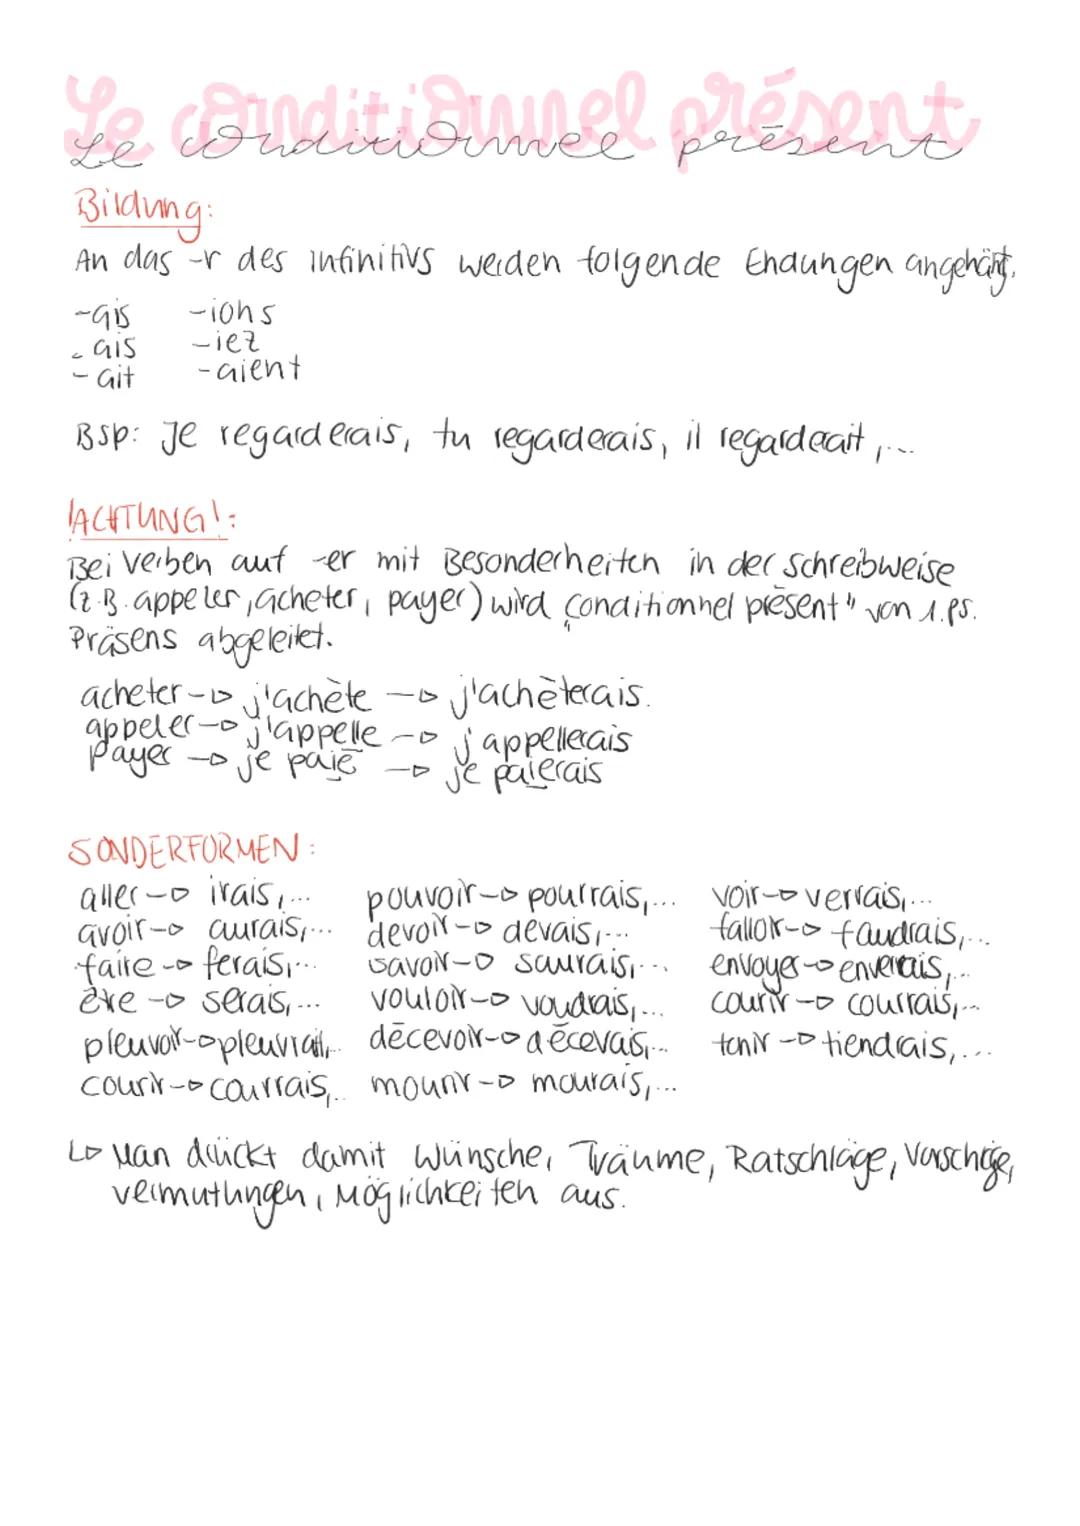 Le conditionnel présent
Le conditionnel présent
Bildung:
An das -r des Infinitivs werden folgende Endungen angehängt.
-ais -ions
-ais -iez
-ait -aient
Bsp: Je regarderais, tu regarderais, il regarderait,...
!ACHTUNG!:
Bei Verben auf -er mit Besonderheiten in der Schreibweise
(z.B. appeler, acheter, payer) wird „conditionnel présent" von 1.Ps.
Präsens abgeleitet.
acheter -> j'achète -> j'achèterais.
appeler -> j'appelle -> j'appellerais
payer -> je paie -> je paierais
SONDERFORMEN:
aller -> irais,... pouvoir -> pourrais,... voir -> verrais,...
avoir -> aurais,... devoir -> devais,... falloir -> faudrais,...
faire -> ferais,... savoir -> saurais,... envoyer -> enverrais,...
être -> serais,... vouloir -> voudrais,... courir -> courrais,...
pleuvoir -> pleuvrait,... décevoir -> décevais,... tenir -> tiendrais,...
courir -> courrais,... mourir -> mourais,...
↳ Man drückt damit Wünsche, Träume, Ratschläge, Vorschläge,
Vermutungen, Möglichkeiten aus.